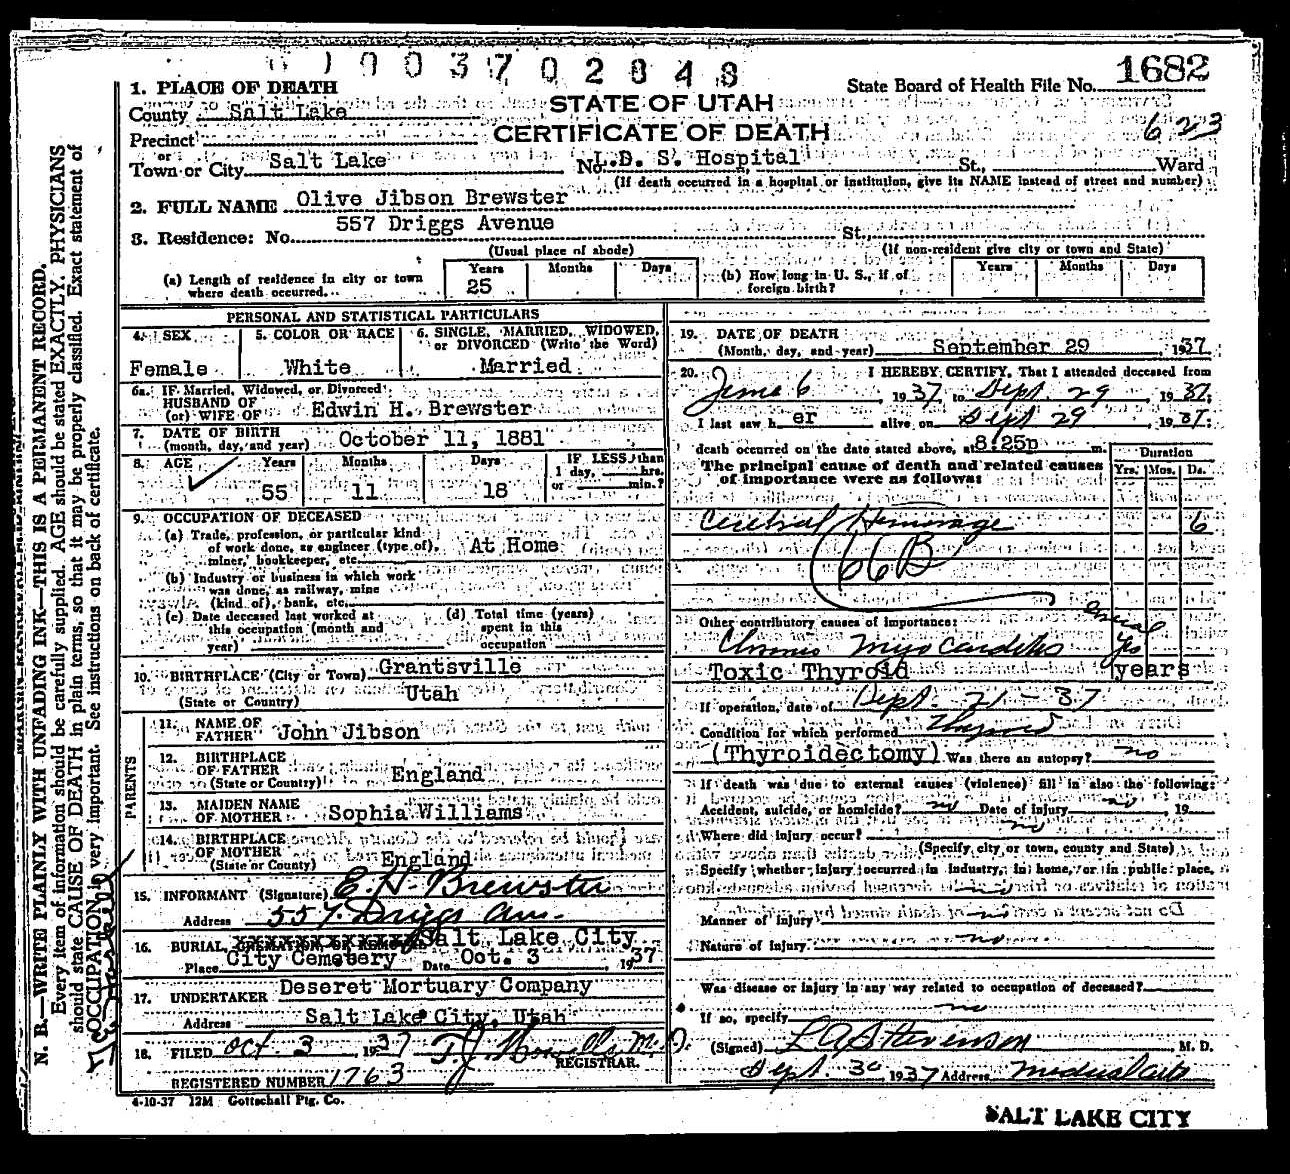 1003702848
1682
State Board of Health File No.
1. PLACE OF DEATH
STATE OF UTAH
County Salt Lake
CERTIFICATE OF DEATH
623
Precinct
or
Town or City Salt Lake No. L.D. S. Hospital St., Ward
(If death occurred in a hospital or institution, give its NAME instead of street and number)
2. FULL NAME Olive Jibson Brewster
3. Residence: No. 557 Driggs Avenue St.
(Usual place of abode) (If non-resident give city or town and State)
(a) Length of residence in city or town where death occurred. Years 25 Months Days
(b) How long in U. S., if of foreign birth? Years Months Days
PERSONAL AND STATISTICAL PARTICULARS
4. SEX Female
5. COLOR OR RACE White
6. SINGLE, MARRIED, WIDOWED, or DIVORCED (Write the Word) Married
6a. IF Married, Widowed, or Divorced
HUSBAND OF
(or) WIFE OF Edwin H. Brewster
7. DATE OF BIRTH
(month, day, and year) October 11, 1881
8. AGE Years 55 Months 11 Days 18 IF LESS than 1 day, hrs. or min.?
9. OCCUPATION OF DECEASED
(a) Trade, profession, or particular kind
of work done, as engineer (type of), At Home
miner, bookkeeper, etc.
(b) Industry or business in which work
was done, as railway, mine
(kind of), bank, etc.
(c) Date deceased last worked at
this occupation (month and
year)
(d) Total time (years)
spent in this
occupation
10. BIRTHPLACE (City or Town) Grantsville
(State or Country) Utah
PARENTS
11. NAME OF FATHER John Jibson
12. BIRTHPLACE OF FATHER
(State or Country) England
13. MAIDEN NAME OF MOTHER Sophia Williams
14. BIRTHPLACE OF MOTHER
(State or County) England
15. INFORMANT (Signature) E. H. Brewster
Address 557 Driggs Ave.
16. BURIAL, Salt Lake City
Place City Cemetery Date Oct. 3, 1937
17. UNDERTAKER Deseret Mortuary Company
Address Salt Lake City, Utah
18. FILED Oct. 3, 1937
REGISTRAR.
REGISTERED NUMBER 1763
4-10-37 12M Gottschall Ptg. Co.
19. DATE OF DEATH
(Month, day, and year) September 29, 1937
20. I HEREBY CERTIFY, That I attended deceased from
June 6, 1937, to Sept. 29, 1937;
I last saw her alive on Sept 29, 1937;
death occurred on the date stated above, at 8:25p m.
The principal cause of death and related causes
of importance were as follows:
Duration
Yrs. Mos. Ds.
Cerebral Hemorage 6
66B
Other contributory causes of importance:
Several
Chronic Myocarditis yrs
Toxic Thyroid years
If operation, date of Sept. 21 - 37
Condition for which performed Thyroid
(Thyroidectomy) Was there an autopsy? no
If death was due to external causes (violence) fill in also the following:
Accident, suicide, or homicide? no Date of injury no, 19
Where did injury occur? no
(Specify city or town, county and State)
Specify whether injury occurred in industry, in home, or in public place,
no
Manner of injury no
Nature of injury no
Was disease or injury in any way related to occupation of deceased?
If so, specify no
(Signed) L A Stevenson, M. D.
Sept. 30, 1937 Address Medical Arts
SALT LAKE CITY
N. B.—WRITE PLAINLY WITH UNFADING INK—THIS IS A PERMANENT RECORD.
Every item of information should be carefully supplied. AGE should be stated EXACTLY. PHYSICIANS
should state CAUSE OF DEATH in plain terms, so that it may be properly classified. Exact statement of
OCCUPATION is very important. See instructions on back of certificate.